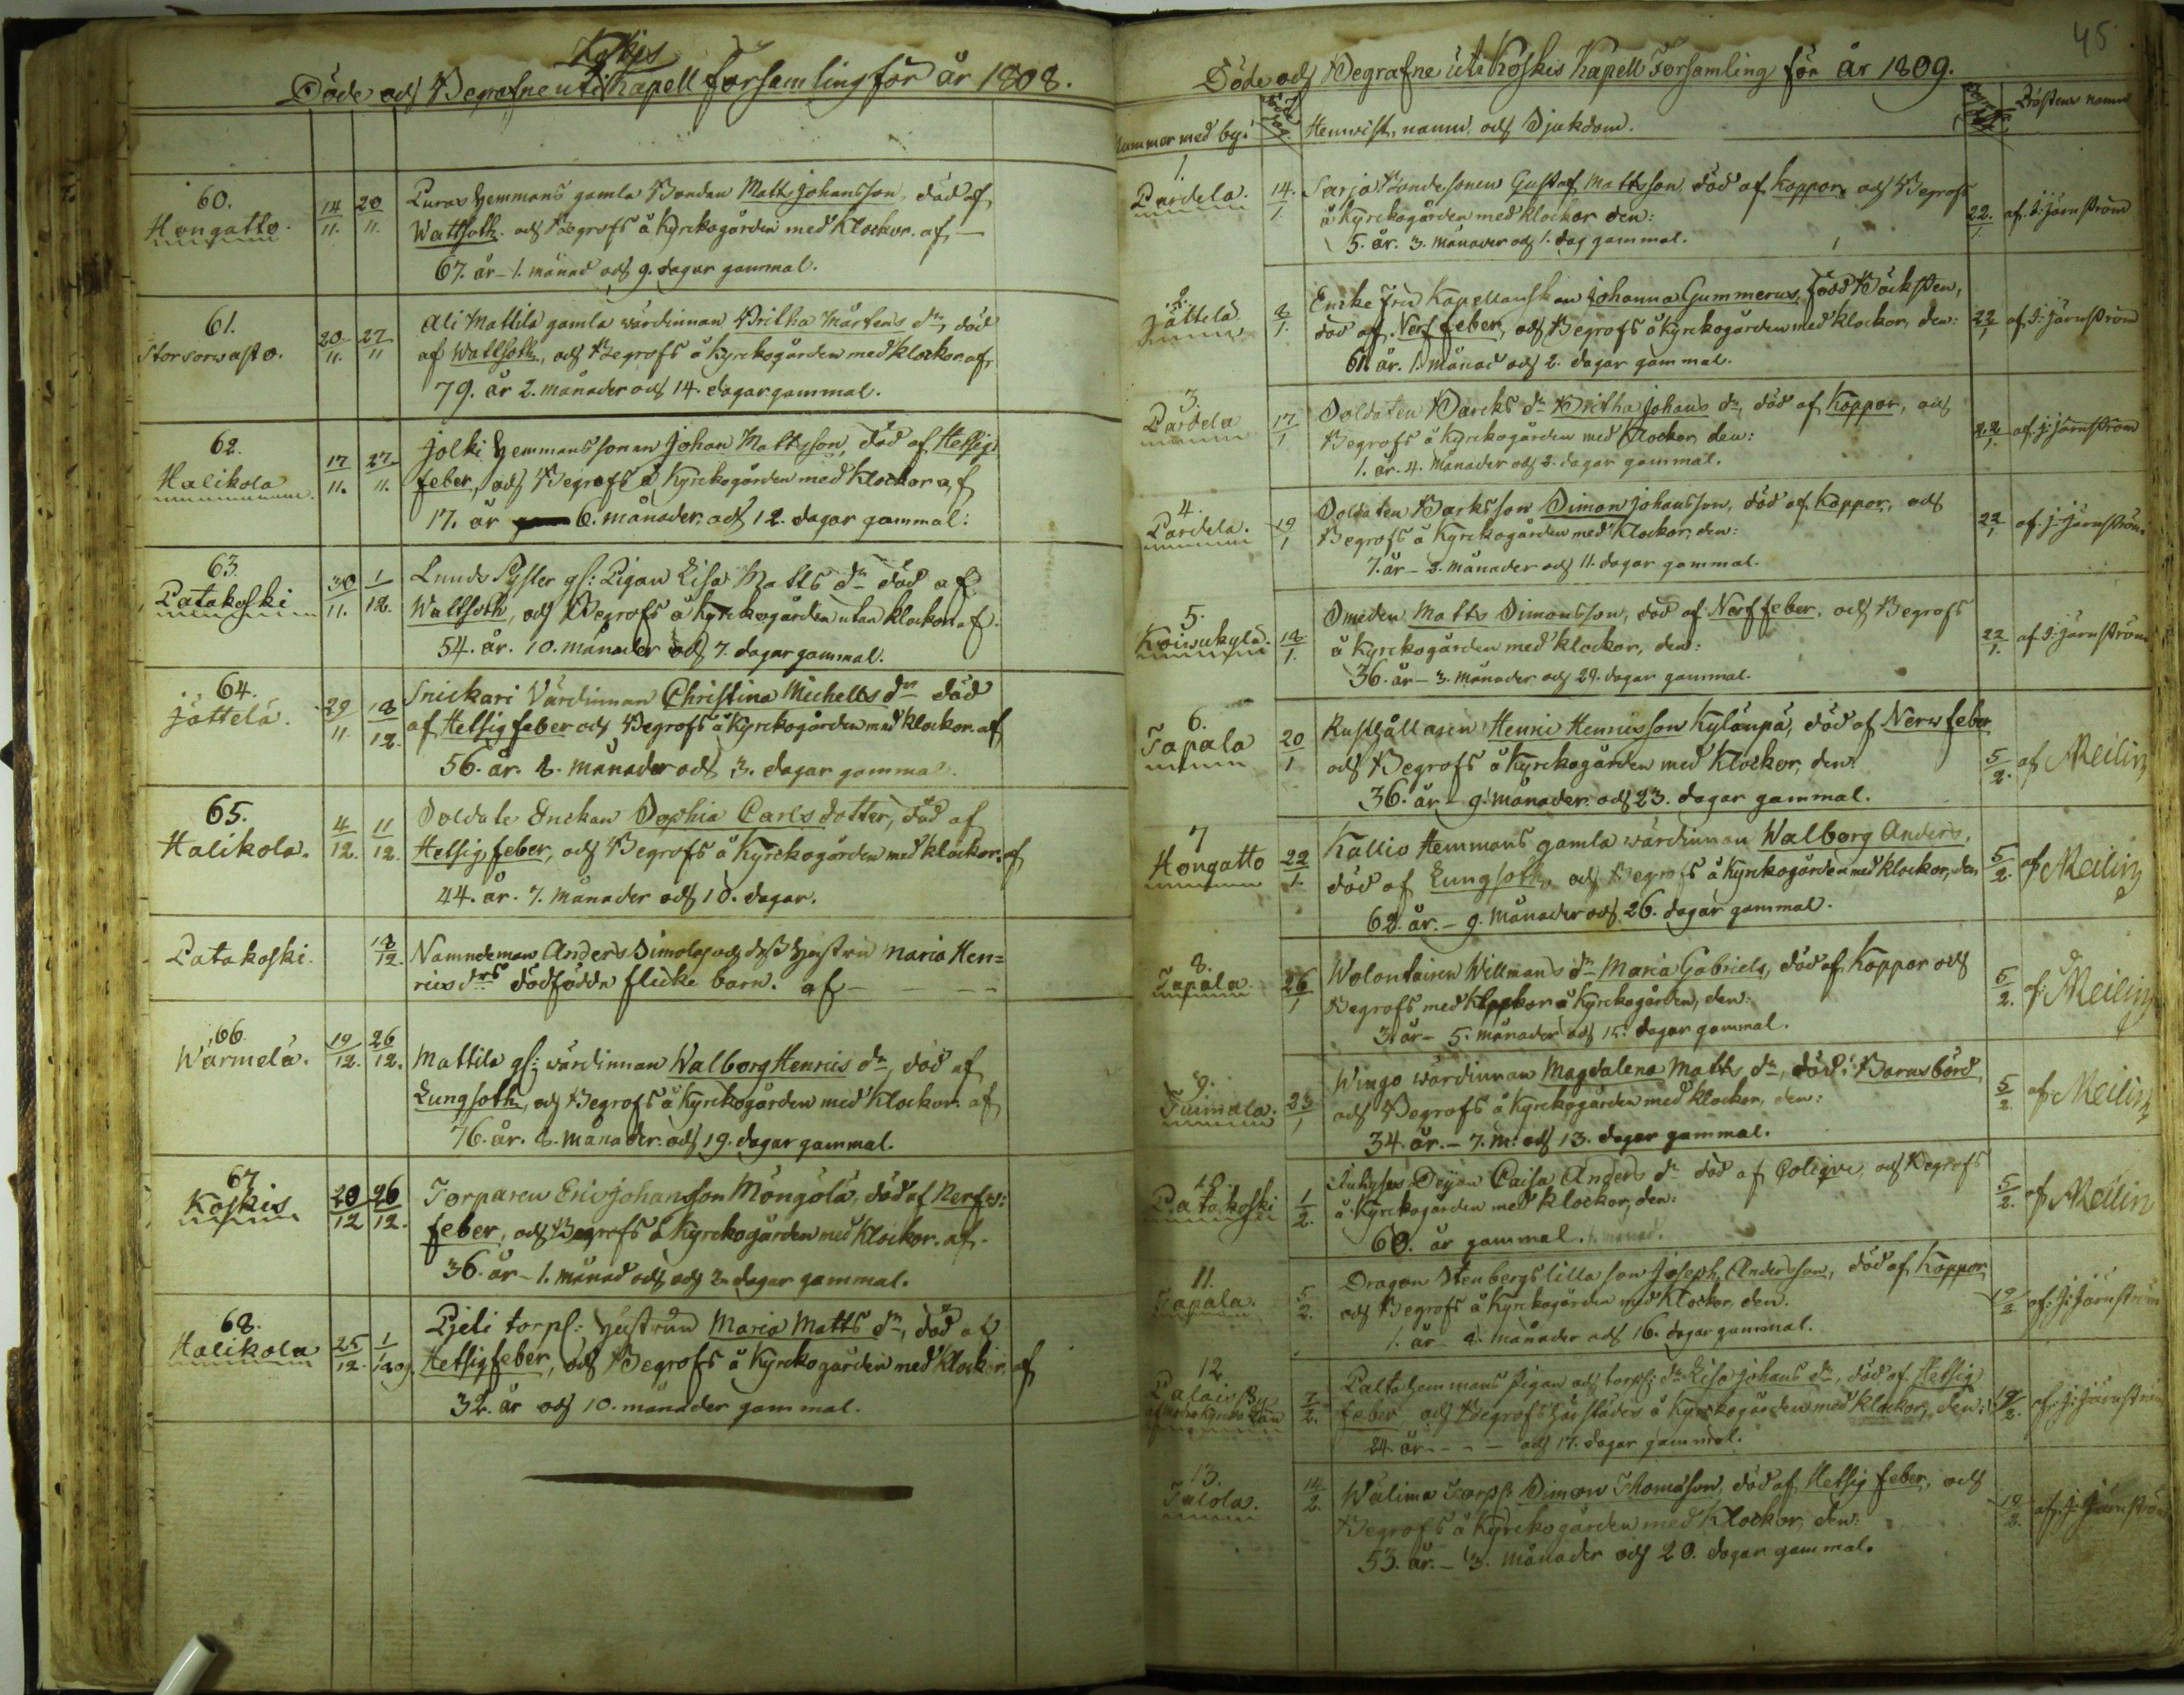 Koskis
Döde och Begrafne uti Kapell församling för år 1808.
60.
Hongatto.
14/11. 20/11.
Hemmans gamla Bonden Matts Johansson, död af
Wattsoth. och Begrofs å Kyrckogården med Klockor. af —
67. år - 1. månad och 9. dagar gammal.
61.
Storsorwasto.
20/11. 27/11
Ali Mattila gamla wärdinnan Britha Mårtens dr, död
af Wattsoth, och Begrofs å Kyrckogården med klockor. af,
79. år 2. månader och 14. dagar gammal.
62.
Halikola
17/11. 27/11.
Jolki Hemmans sonen Johan Mattsson, död af Hetsig
feber, och Begrofs å Kyrckogården med Klockor af
17. år 6. månader och 12. dagar gammal:
63.
Patakoski
30/11. 1/12.
gl: Pigan Lisa Matts dr död af
Wattsoth, och Begrofs å Kyrckogården utan klockor af.
54. år. 10. månader och 7. dagar gammal.
64.
Jättelä.
29/11. 18/12.
Snickari Värdinnan Christina Michells dr död
af Hetsig feber och Begrofs å Kyrckogården med klockor. af
56. år. 8. månader och 3. dagar gammal.
65.
Halikola.
4/12. 11/12.
Soldate Enckan Sophia Carls dotter, död af
Hetsig feber, och Begrofs å Kyrckogården med klockor. af
44. år. 7. månader och 10. dagar.
Patakoski.
18/12.
Namndeman Anders Simola och dess Hustru Maria Hen=
rics drs dödfödda flicke barn. af - - - -
66.
Warmelä.
19/12. 26/12.
Mattila gl: wärdinnan Walborg Henrics dr, död af
Lungsoth, och Begrofs å Kyrckogården med Klockor. af
76. år. 8. månader. och 19. dagar gammal.
67
Koskis
20/12 26/12.
Torparen Eric Johansson Möngölä, död af Nerfw:
feber, och Begrofs å Kyrckogården med Klockor. af.
36. år - 1. månad och och 2. dagar gammal.
68.
Halikola
25/12. 1/1 809.
Pjeli torps: Hustrun Maria Matts dr, död af
Hetsig feber, och Begrofs å Kyrckogården med Klockor. af
32. år och 10. månader gammal.
45
Döde och Begrafne uti Koskis Kapell Församling för år 1809.
Nummer med by.
Hemwist, namn och Sjukdom.
Prästens namn
1.
Pardela.
14./1.
Sarja Bondesonen Gustaf Mattsson, död af koppor och Begrofs
å Kyrckogården med klockor den:
5. år. 3. månader och 1. dag gammal.
22./1 af. J: Järnström
2.
Jättelä
8/1.
Encke fru Kapellanskan Johanna Gummerus, född Bäcksten,
död af Nerf feber, och Begrofs å Kyrckogården med klockor, den:
61 år. 1. Månad och 2. dagar gammal.
22/1 af J: Järnström
3.
Pardela
17/1
Soldaten Barcks dr Britha Johans dr, död af Koppor, och
Begrofs å Kyrckogården med Klockor, den:
1. år. 4. Månader och 2. dagar gammal.
22/1. af. J: Järnström
4.
Pardela.
19/1
Soldaten Barksson Simon Johansson, död af Koppor, och
Begrofs å Kyrckogården med Klockor, den:
7. år - 8. månader och 11. dagar gammal.
22/1 af. J: Järnström
5.
Koiwukylä.
18/1.
Smeden Matts Simonsson, död af Nerf feber, och Begrofs
å Kyrckogården med klockor, den:
36. år - 3. Månader och 29. dagar gammal.
22/1. af J: Järnström
6.
Tapala
20/1
Rusthållaren Henric Henricsson Kylänpä, död af Nerw feber
och Begrofs å Kyrckogården med Klockor, den:
36. år - 9. månader och 23. dagar gammal.
5/2. af Meilin
7
Hongatto
22/1.
Kallio Hemmans gamla wärdinnan Walborg Anders,
död af Lungsoth, och Begrofs å Kyrckogården med klockor, den
62. år. - 9. Månader och 26. dagar gammal.
5/2. af Meilin
8.
Tapala.
26/1
Wolontairen Willmans dr Maria Gabriels, död af Koppor och
Begrofs med Klockor å Kyrckogården, den:
3. år - 5. månader och 15. dagar gammal.
5/2. af: Meilin
9.
Tuimala.
23/1
Wingo wärdinnan Magdalena Matts dr, död i Barnsbörd,
och Begrofs å Kyrckogården med klockor, den:
34. år. - 7. m: och 13. dagar gammal.
5/2 af Meilin
10.
Patakoski
1/2.
Caisa Anders dr död af Colique, och Begrofs
å Kyrckogården med Klockor, den:
60. år gammal. 1. månad.
5/2. af Meilin
11.
Tapala.
5/2.
Dragon Stenbergs lilla son Joseph Andersson, död af Koppor,
och Begrofs å Kyrckogården med Klockor, den.
1. år - 8. månader och 16. dagar gammal.
19/2 af: J: Järnström
12.
7/2.
Palta Hemmans Pigan och torps: dr Lisa Johans dr, död af Hetsig
feber och Begrofs å Kyrckogården med klockor, den:
24. år - - - och 17. dagar gammal.
19/2. af: J: Järnström
13.
Talola.
14/2.
Wälimä Torps Simon Thomasson, död af Hetsig feber, och
Begrofs å Kyrckogården med Klockor, den:
53. år. - 3. månader och 20. dagar gammal.
19/2. af. J: Järnström